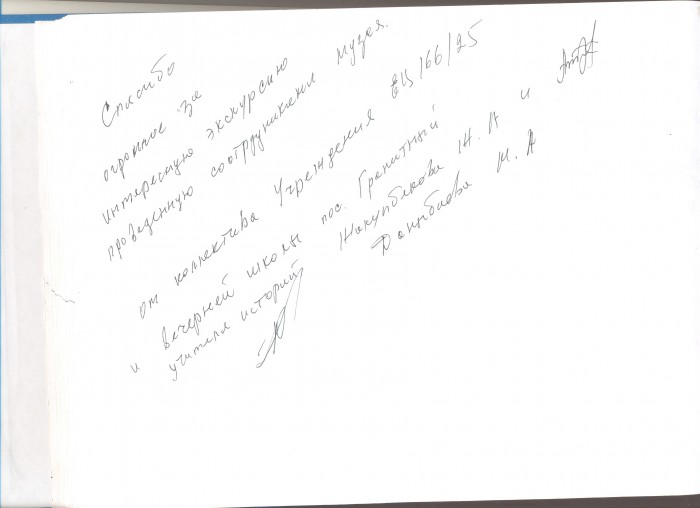 Спасибо
огромное за
интересную экскурсию
проведенную сотрудниками музея.
от коллектива Учреждения ЕЦ/66/25
и вечерней школы пос. Гранитный
учителя историй Жакупбекова Ж. А и
М. А